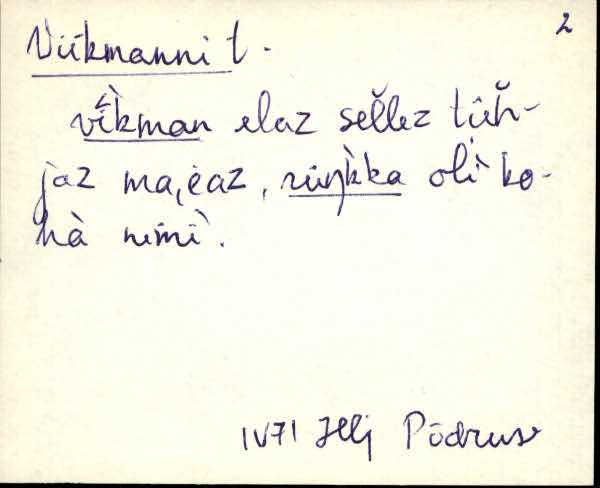 2
Viikmanni t.
vīkman elaz sellez tǖh-
jaz majeaz, rūŋkka oĺi ko-
hà nimì.
IV71 Hlj Põdrus